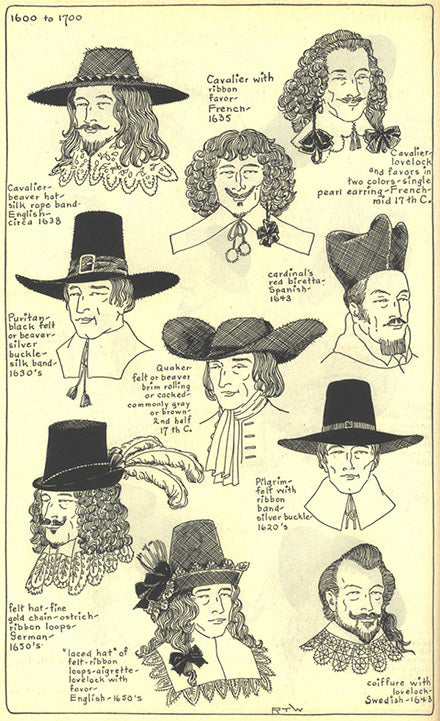 1600 to 1700
Cavalier-
beaver hat-
silk rope band-
English-
circa 1638
Cavalier with
ribbon
favor-
French-
1635
Cavalier-
lovelock
and favors in
two colors-single
pearl earring-French-
mid 17th C.
Puritan-
black felt
or beaver-
silver
buckle-
silk band-
1630's
cardinal's
red biretta-
Spanish-
1643
Quaker
felt or beaver
brim rolling
or cocked-
commonly gray
or brown-
2nd half
17th C.
Pilgrim-
felt with
ribbon
band-
silver buckle-
1620's
felt hat-fine
gold chain-ostrich-
ribbon loops-
German-
1650's'
"laced hat" of
felt-ribbon
loops-aigrette-
lovelock with
favor-
English-1650's
coiffure with
lovelock-
Swedish-1643
RTW